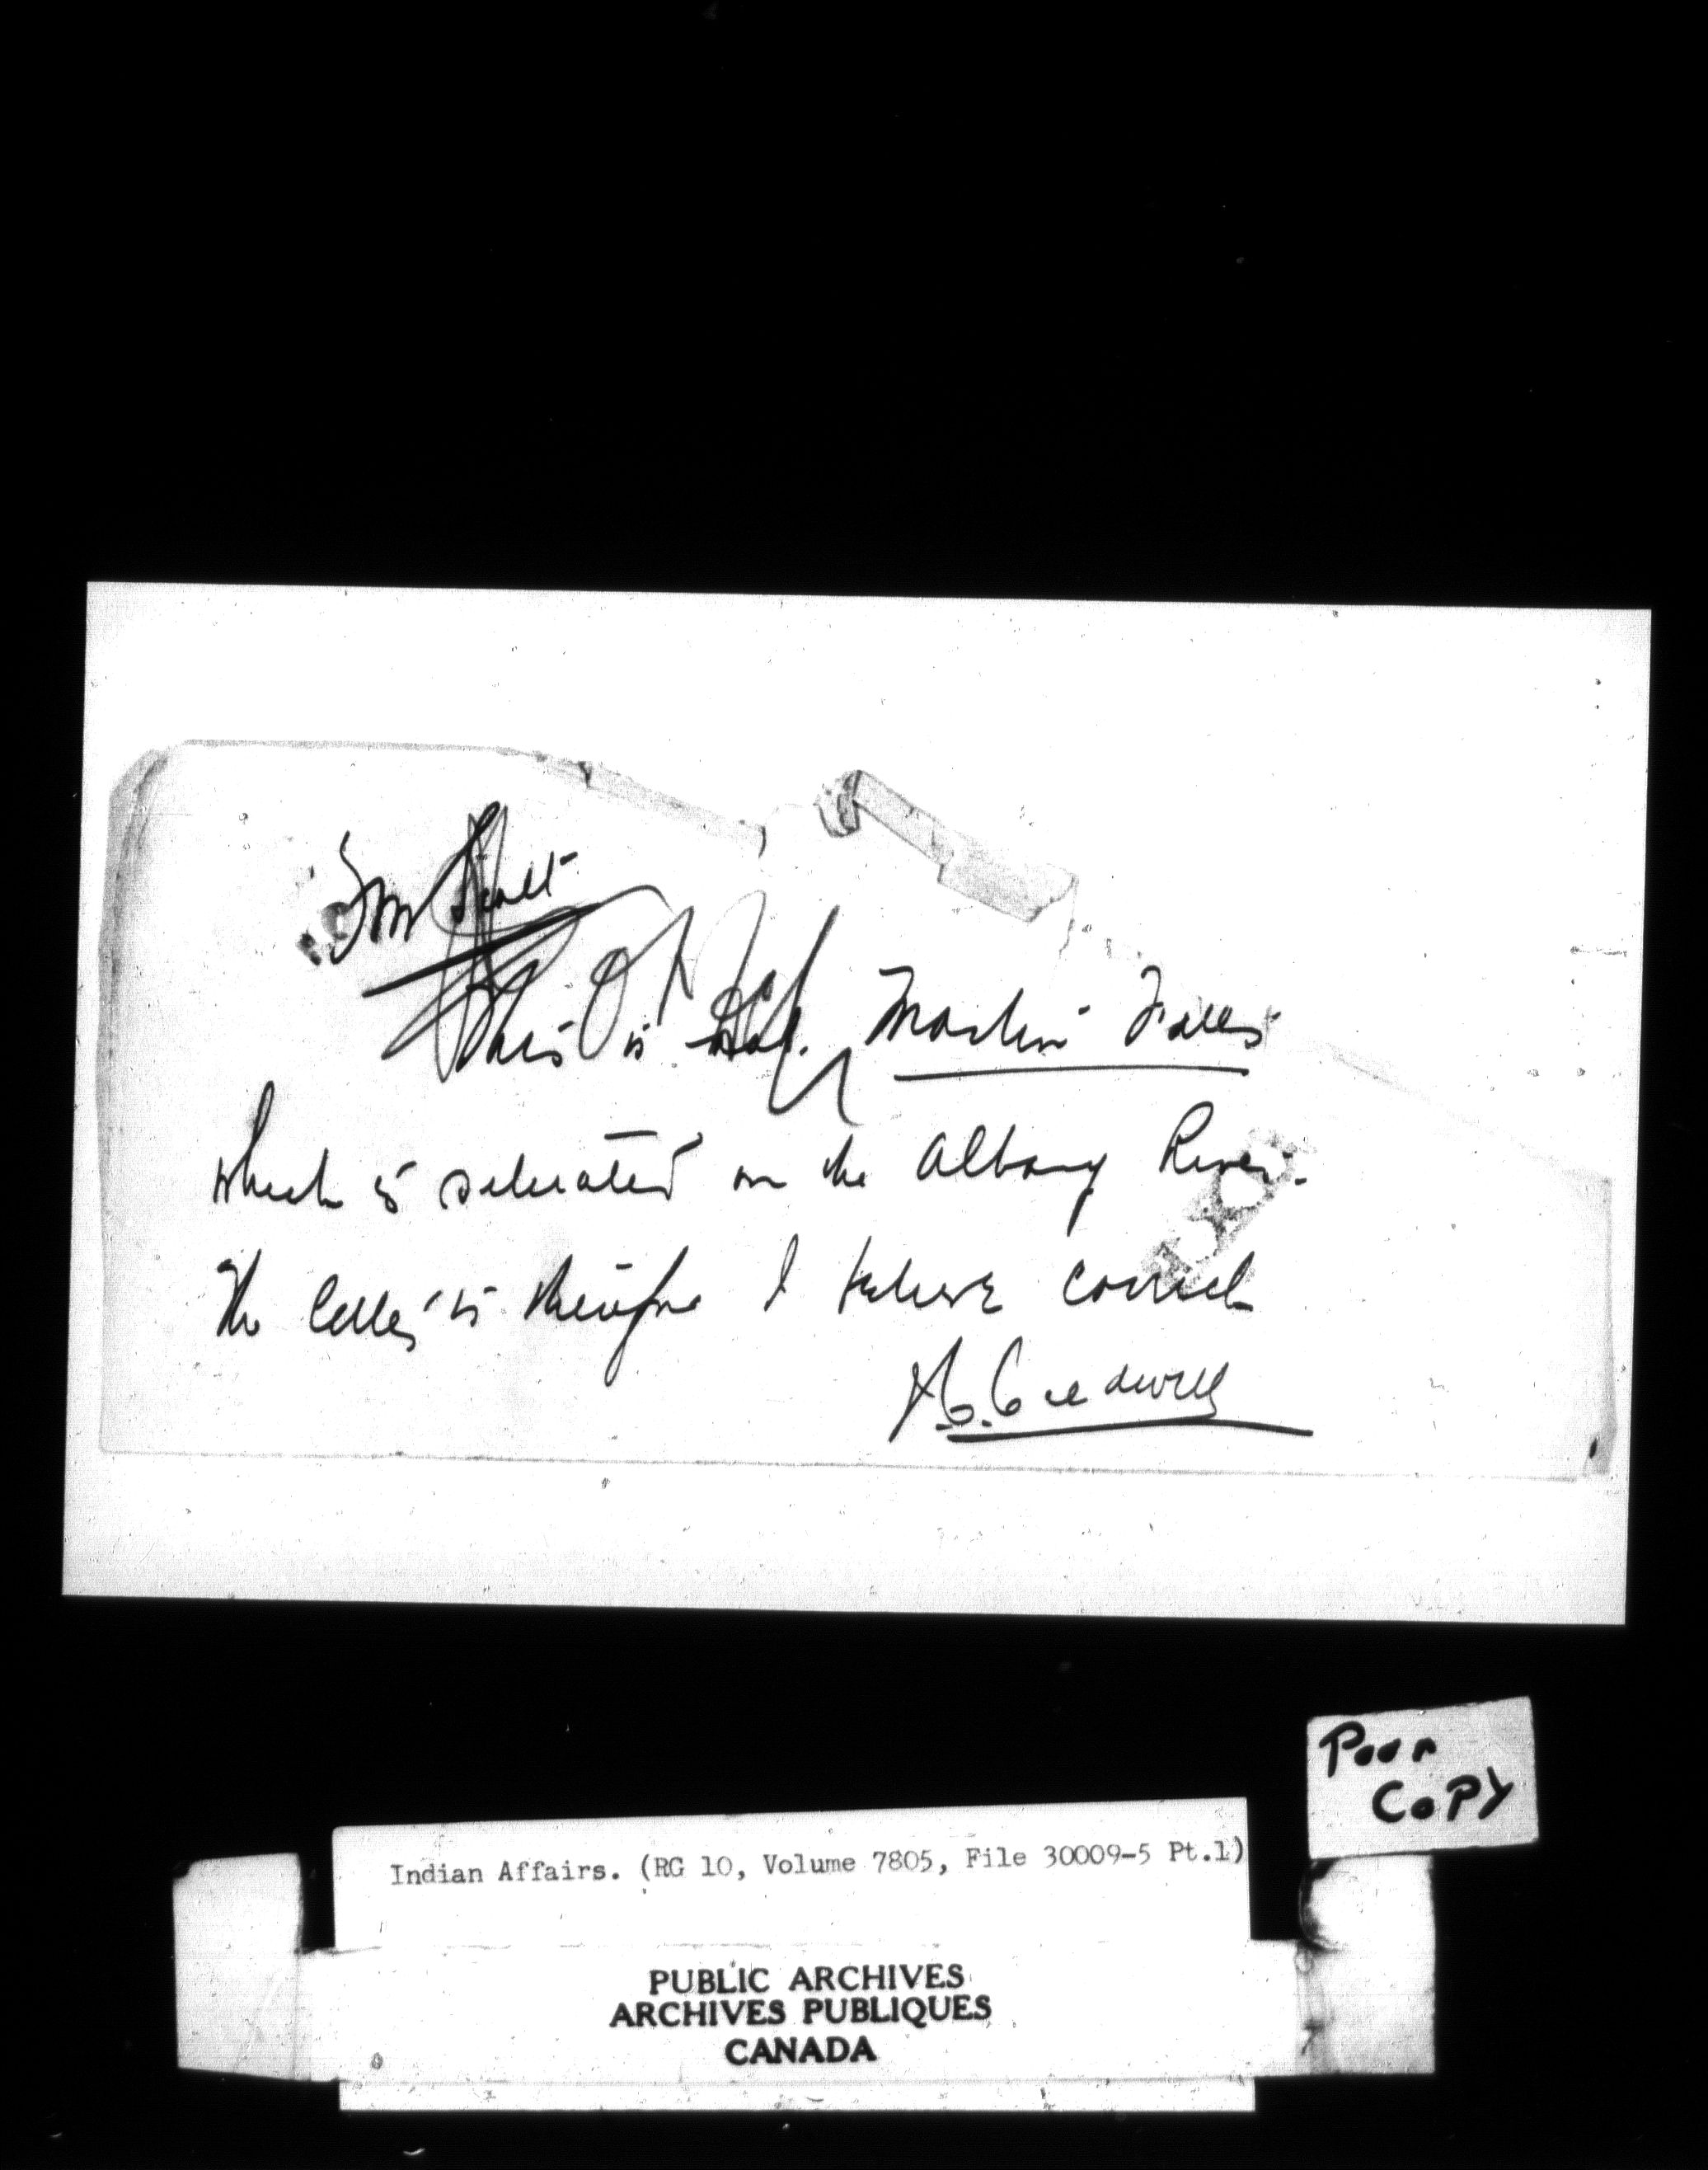 Mr Scott
This is Martin Falls
which is situated on the Albany River.
The letter is therefore I believe correct
Poor
Copy
Indian Affairs. (RG 10, Volume 7805, File 30009-5 Pt.1)
PUBLIC ARCHIVES
ARCHIVES PUBLIQUES
CANADA